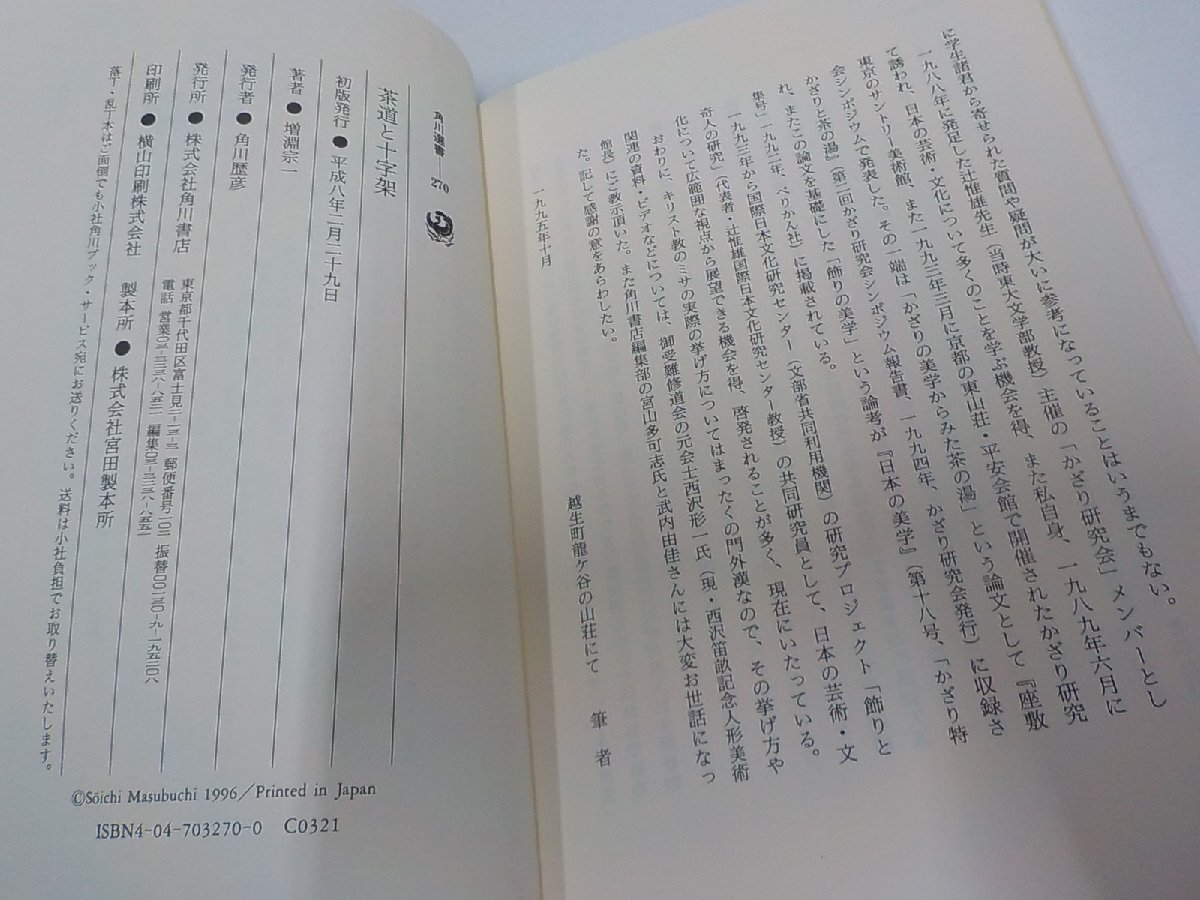 に学生諸君から寄せられた質問や疑問が大いに参考になっていることはいうまでもない。
一九八八年に発足した辻惟雄先生（当時東大文学部教授）主催の「かざり研究会」メンバーとし
て誘われ、日本の芸術・文化について多くのことを学ぶ機会を得、また私自身、一九八九年六月に
東京のサントリー美術館、また一九九三年三月に京都の東山荘・平安会館で開催されたかざり研究
会シンポジウムで発表した。その一端は「かざりの美学からみた茶の湯」という論文として『座敷
かざりと茶の湯』（第二回かざり研究会シンポジウム報告書、一九九四年、かざり研究会発行）に収録さ
れ、またこの論文を基礎にした「飾りの美学」という論考が『日本の美学』（第十八号、「かざり特
集号」一九九二年、ぺりかん社）に掲載されている。
一九九三年から国際日本文化研究センター（文部省共同利用機関）の研究プロジェクト「飾りと
奇人の研究」（代表者・辻惟雄国際日本文化研究センター教授）の共同研究員として、日本の芸術・文
化について広範囲な視点から展望できる機会を得、啓発されることが多く、現在にいたっている。
おわりに、キリスト教のミサの実際の挙げ方についてはまったくの門外漢なので、その挙げ方や
関連の資料・ビデオなどについては、御受難修道会の元会士西沢形一氏（現・西沢笛畝記念人形美術
館長）にご教示頂いた。また角川書店編集部の宮山多可志氏と武内由佳さんには大変お世話になっ
た。記して感謝の意をあらわしたい。
一九九五年十月
越生町龍ヶ谷の山荘にて　筆者
角川選書 270
茶道と十字架
初版発行●平成八年二月二十九日
著者●増淵宗一
発行者●角川歴彦
発行所●株式会社角川書店
東京都千代田区富士見二-十三-三 郵便番号一〇二 振替〇〇一三〇-九-一九五二〇八
電話 営業〇三-三二三八-八五二一 編集〇三-三二三八-八五五一
印刷所●横山印刷株式会社 製本所●株式会社宮田製本所
落丁・乱丁本はご面倒でも小社角川ブック・サービス宛にお送りください。送料は小社負担でお取り替えいたします。
©Sōichi Masubuchi 1996/Printed in Japan
ISBN4-04-703270-0 C0321